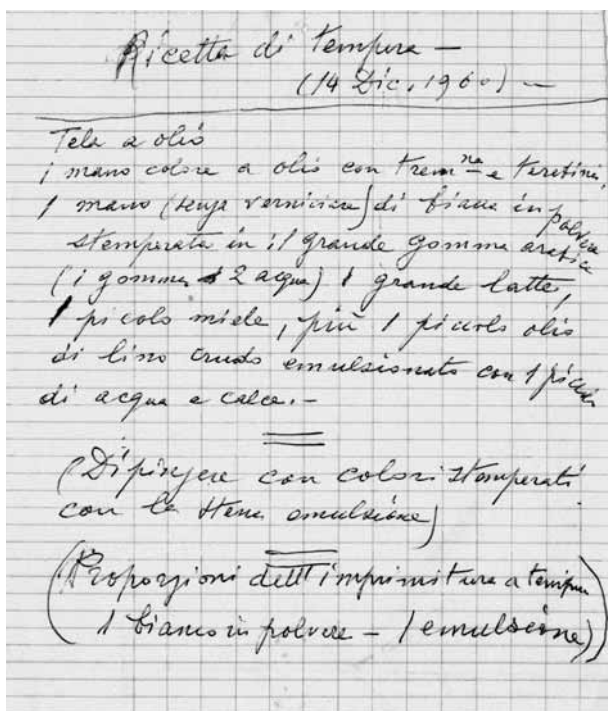 Ricetta di Tempera —
(14 Dic. 1960) —
Tela a olio
1 mano colore a olio con Trem.na e
1 mano (senza verniciare) di biacca in polvere
stemperata in : 1 grande gomma arabica
(1 gomma 2 acqua) 1 grande latte,
1 piccolo miele, più 1 piccolo olio
di lino crudo emulsionato con 1 piccolo
di acqua e calce. —
(Dipingere con colori stemperati
con la stessa emulsione)
(Proporzioni dell'imprimitura a tempera
1 bianco in polvere — 1 emulsione)